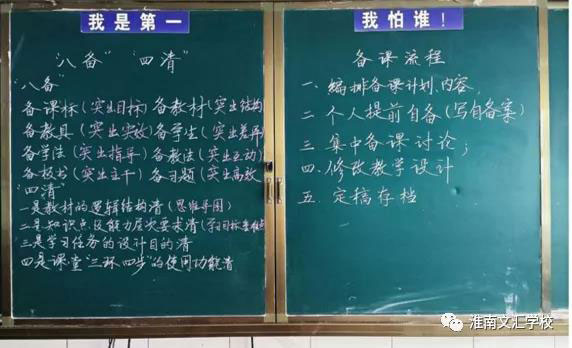 我是第一
我怕谁！
"八备" "四清"
"八备"
备课标（突出目标）备教材（突出结构
备教具（突出实效）备学生（突出差异
备学法（突出指导）备教法（突出互动）
备板书（突出主干）备习题（突出高效
"四清"
一是教材的逻辑结构清（思维导图）
二是知识点及能力层次要求清（学习目标重难点
三是学习任务的设计目的清
四是课堂"三环四步"的使用功能清
备课流程
一、编排备课计划、内容
二、个人提前自备（写自备案）
三、集中备课讨论；
四、修改教学设计
五、定稿存档
淮南文汇学校